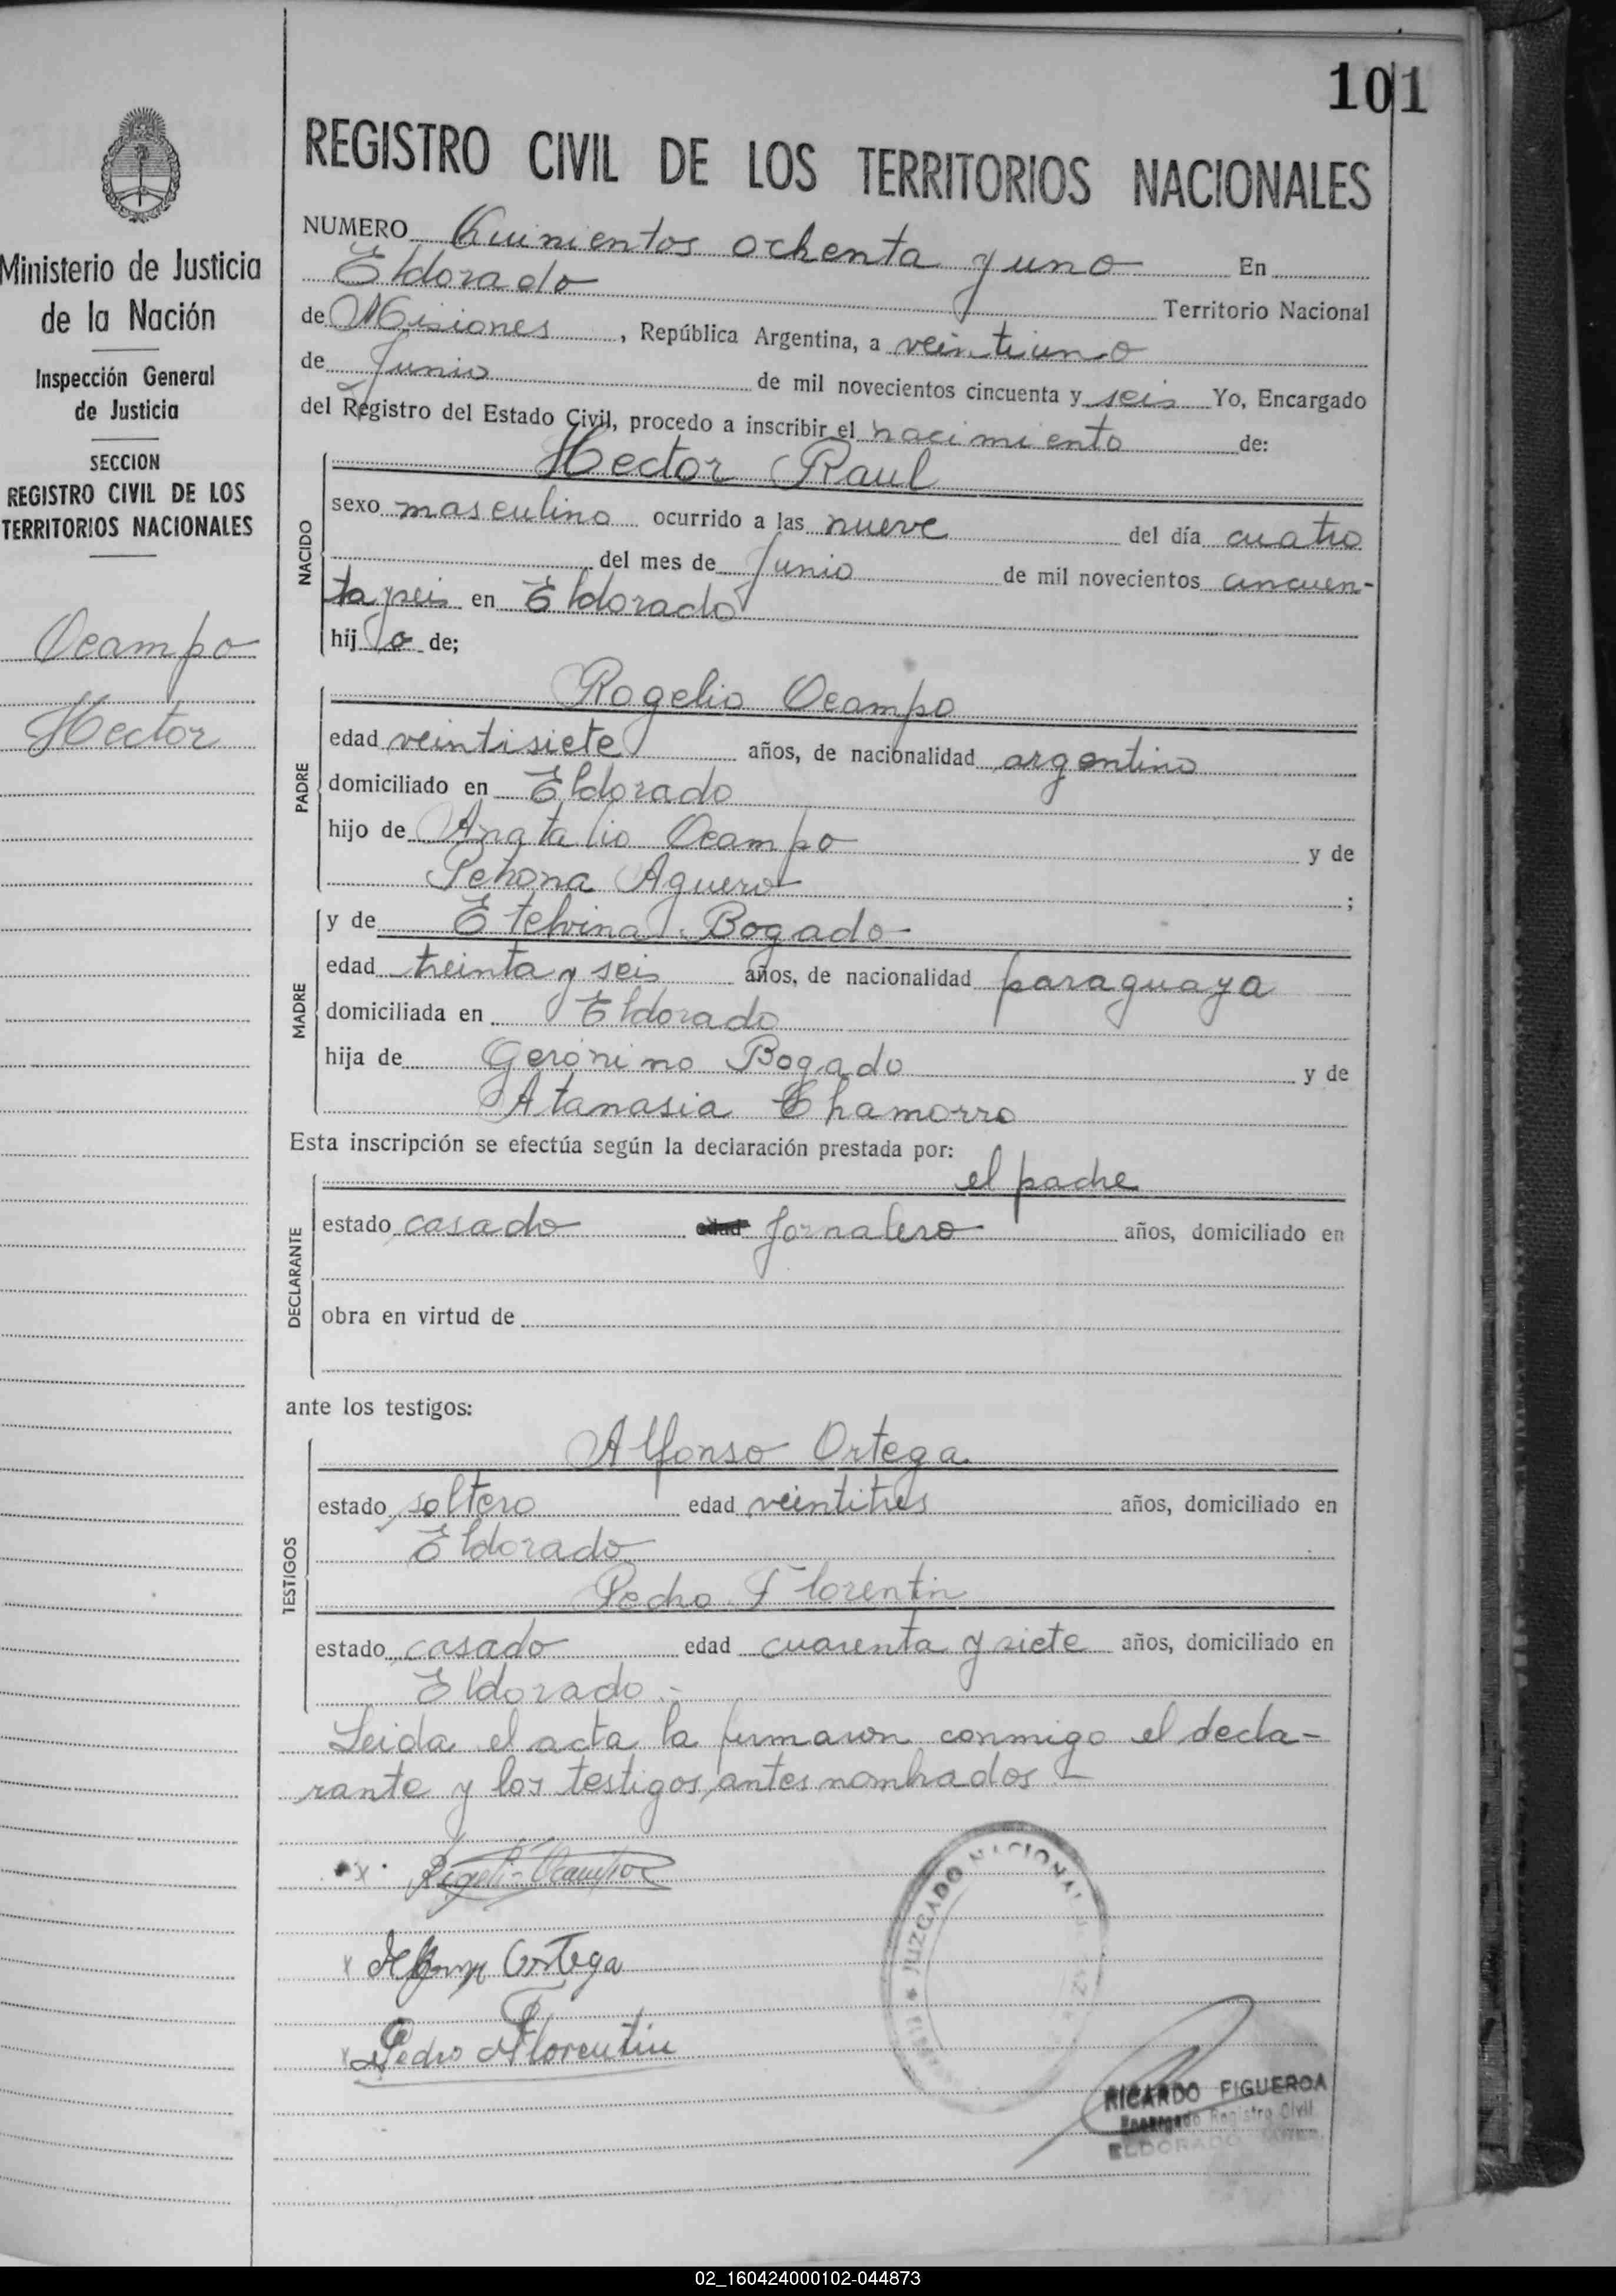 101
REGISTRO CIVIL DE LOS TERRITORIOS NACIONALES
Ministerio de Justicia
de la Nación
Inspección General
de Justicia
SECCION
REGISTRO CIVIL DE LOS
TERRITORIOS NACIONALES
Ocampo
Hector
NUMERO Quinientos ochenta y uno En
Eldorado Territorio Nacional
de Misiones, República Argentina, a veintiuno
de Junio de mil novecientos cincuenta y seis Yo, Encargado
del Registro del Estado Civil, procedo a inscribir el nacimiento de:
NACIDO
Hector Raul
sexo masculino ocurrido a las nueve del día cuatro
del mes de Junio de mil novecientos cincuen-
ta y seis en Eldorado
hijo de;
PADRE
Rogelio Ocampo
edad veintisiete años, de nacionalidad argentino
domiciliado en Eldorado
hijo de Ocampo y de
Aguero ;
MADRE
y de Etelvina Bogado
edad treinta y seis años, de nacionalidad paraguaya
domiciliada en Eldorado
hija de Gerónimo Bogado y de
Atanasia Chamorro
Esta inscripción se efectúa según la declaración prestada por:
DECLARANTE
el padre
estado casado edad Jornalero años, domiciliado en
obra en virtud de
ante los testigos:
TESTIGOS
Alfonso Ortega
estado soltero edad veintitres años, domiciliado en
Eldorado
Pedro Florentin
estado casado edad cuarenta y siete años, domiciliado en
Eldorado.-
Leida el acta la firmaron conmigo el decla-
rante y los testigos antes nombrados.-
x Rogelio Ocampo
x Alfonso Ortega
x Pedro Florentin
JUZGADO NACIONAL
RICARDO FIGUEROA
Encargado Registro Civil
ELDORADO
02_160424000102-044873